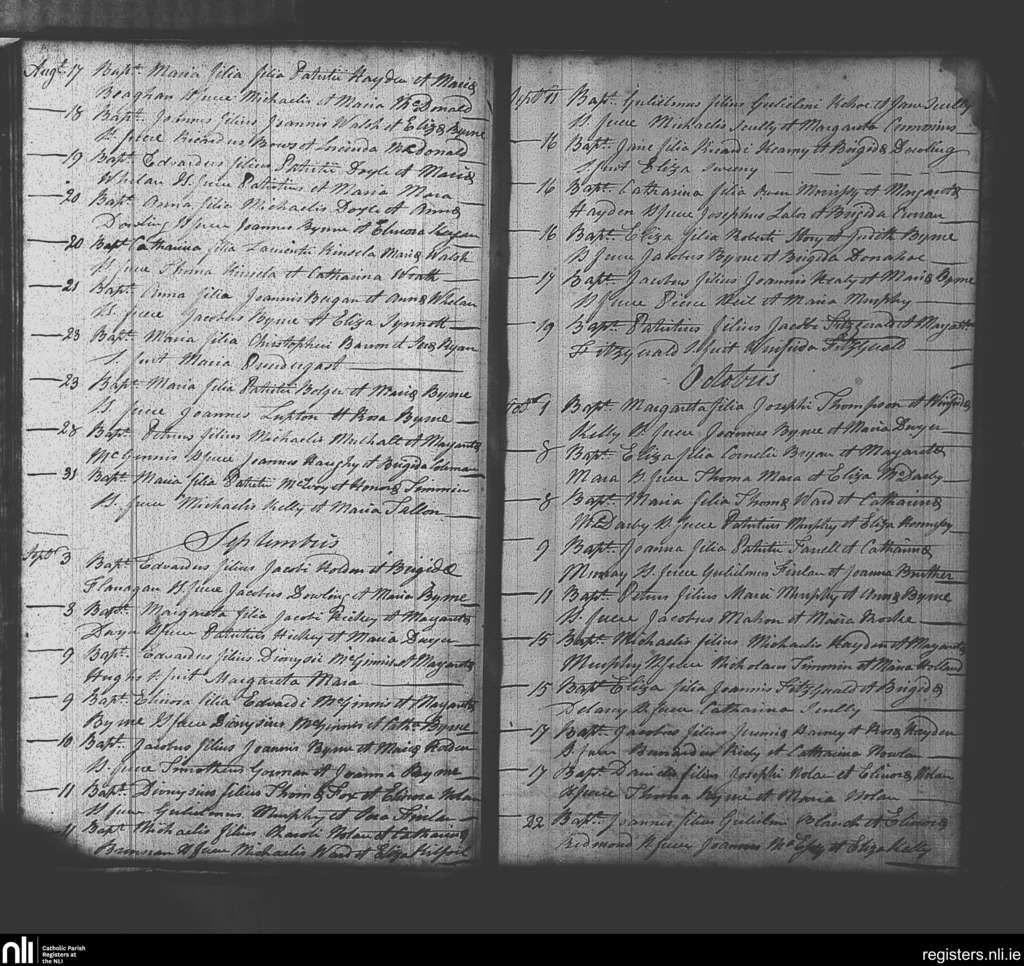 Augt. 17 Bapt. Maria filia Patritii Hayden et Mariæ
Beaghan Sp. fuere Michaelis et Maria McDonald
18 Bapt. Joannes filius Joannis Walsh et Elizæ Byrne
Sp. fuere Ricardus Bowes et McDonald
19 Bapt. Edvardus filius Patritii Doyle et Mariæ
Whelan Sp. fuere Patritius et Maria Mara
20 Bapt. Anna filia Michaelis Doyle et Annæ
Dowling Sp. fuere Joannes Byrne et Elinora Keegan
20 Bapt. Catharina filia Laurentii Kinsela Mariæ Walsh
Sp. fuere Thoma Kinsela et Catharina
21 Bapt. Anna filia Joannis Beigan et Annæ Whelan
Sp. fuere Jacobus Byrne et Eliza Synnott
23 Bapt. Maria filia Christopheri Barron et Ryan
S. fuit Maria Prendergast
23 Bapt. Maria filia Patritii Bolger et Mariæ Byrne
Sp. fuere Joannes Lupton et Rosa Byrne
28 Bapt. Petrus filius Michaelis Mulhall et Margaritæ
McGinnis Sp. fuere Joannes Haughy et Brigida Coleman
31 Bapt. Maria filia Patritii McEvoy et Honoræ Timmin
Sp. fuere Michaelis Kelly et Maria Tallon
Septembris
Sept. 3 Bapt. Edvardus filius Jacobi Holden et Brigidæ
Flanagan Sp. fuere Jacobus Dowling et Maria Byrne
3 Bapt. Margareta filia Jacobi Hickey et Margaretæ
Dwyer Sp. fuere Patritius Hickey et Maria Dwyer
9 Bapt. Edvardus filius Dionysii McGinnis et Margaritæ
Hughes S. fuit Margareta Mara
9 Bapt. Elinora filia Edvardi McGinnis et Margaritæ
Byrne Sp. fuere Dionysius McGinnis et Cath. Byrne
10 Bapt. Jacobus filius Joannis Byrne et Mariæ Holden
Sp. fuere Timotheus Gorman et Joanna Byrne
11 Bapt. Dionysius filius Thomæ Fox et Elinora Nolan
Sp. fuere Gulielmus Murphy et Finlan
11 Bapt. Michaelis filius Caroli Nolan et Catharinæ
Brennan Sp. fuere Michaelis Ward et Eliza
Sept. 11 Bapt. Gulielmus filius Gulielmi Kehoe et Jane Scully
Sp. fuere Michaelis Scully et Margareta Cummins
16 Bapt. Jane filia Ricardi Kearny et Brigidæ Dowling
S. fuit Eliza Sweeny
16 Bapt. Catharina filia Owen Murphy et Margaretæ
Hayden Sp. fuere Josephus Lalor et Brigida Curran
16 Bapt. Eliza filia Roberti Story et Judith Byrne
Sp. fuere Jacobus Byrne et Brigida Donahoe
17 Bapt. Jacobus filius Joannis Healy et Mariæ Byrne
Sp. fuere Pierce Neil et Maria Murphy
19 Bapt. Patritius filius Jacobi Fitzgerald et Margaretæ
Fitzgerald S. fuit Winifrida Fitzgerald
Octobris
1 Bapt. Margareta filia Josephi Thompson et
Kelly Sp. fuere Joannes Byrne et Maria Dwyer
8 Bapt. Eliza filia Cornelii Bryan et Margaretæ
Mara Sp. fuere Thoma Mara et Eliza McDarby
8 Bapt. Maria filia Thomæ Ward et Catharinæ
McDarby Sp. fuere Patritius Murphy et Eliza
9 Bapt. Joanna filia Patritii Farrell et Catharinæ
Murray Sp. fuere Gulielmus Finlan et Joanna
11 Bapt. Petrus filius Marci Murphy et Annæ Byrne
Sp. fuere Jacobus Mahon et Maria
15 Bapt. Michaelis filius Michaelis Hayden et Margaritæ
Murphy Sp. fuere Nicholaus Timmin et Maria Holland
15 Bapt. Eliza filia Joannis Fitzgerald et Brigidæ
Delaney Sp. fuere Catharina Scully
17 Bapt. Jacobus filius et Rosæ Hayden
Sp. fuere Bernardus et Catharina Nowlan
17 Bapt. Daniel filius Josephi Nolan et Elinoræ Nolan
Sp. fuere Thoma Byrne et Maria Nolan
22 Bapt. Joannis filius Gulielmi Blanch et Elinoræ
Redmond Sp. fuere Joannes McEvoy et Eliza Kelly
nli
Catholic Parish
Registers at
the NLI
registers.nli.ie